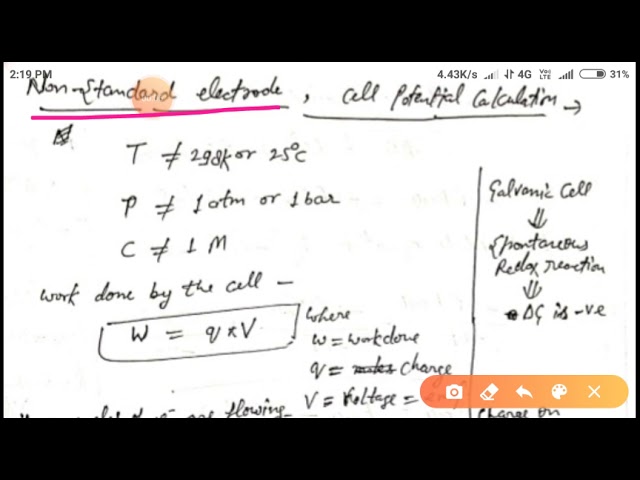 2:19 PM 4.43K/s 4G VoLTE 31%
Non-Standard electrode, Cell Potential Calculation →
T ≠ 298K or 25°C
P ≠ 1 atm or 1 bar
C ≠ 1 M
work done by the cell —
W = q*V
where
w = workdone
q = Charge
V = Voltage =
are flowing
Galvanic Cell
⇓
Spontaneous
Redox reaction
⇓
ΔG is -ve
Charge on